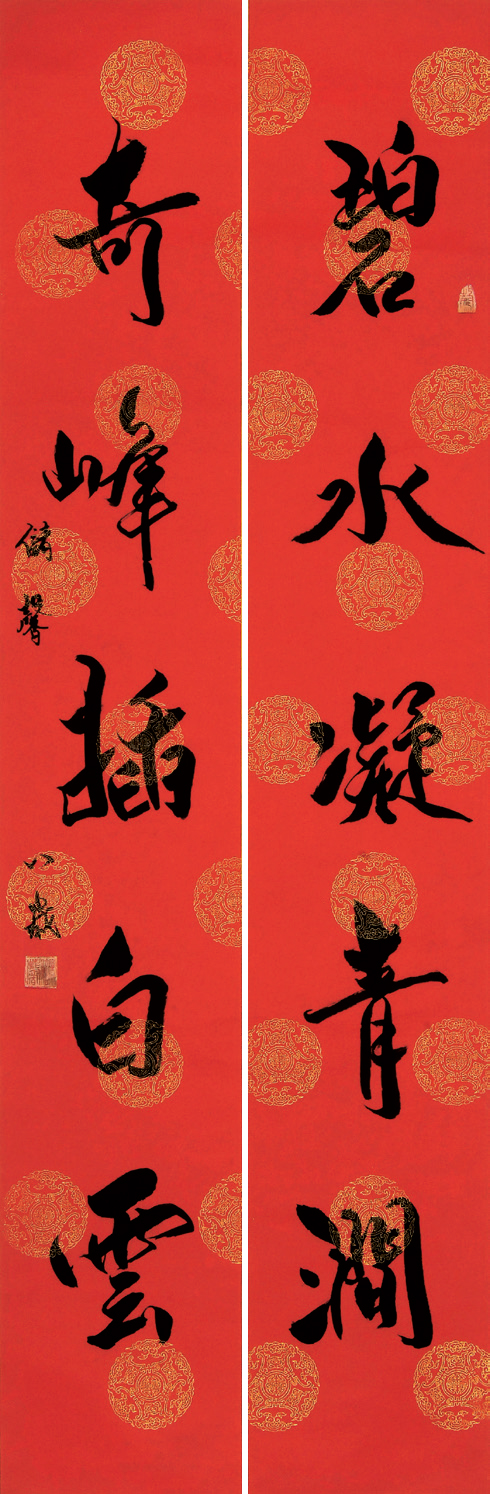 碧水凝青澗
奇峰插白雲
儲馨
八歲